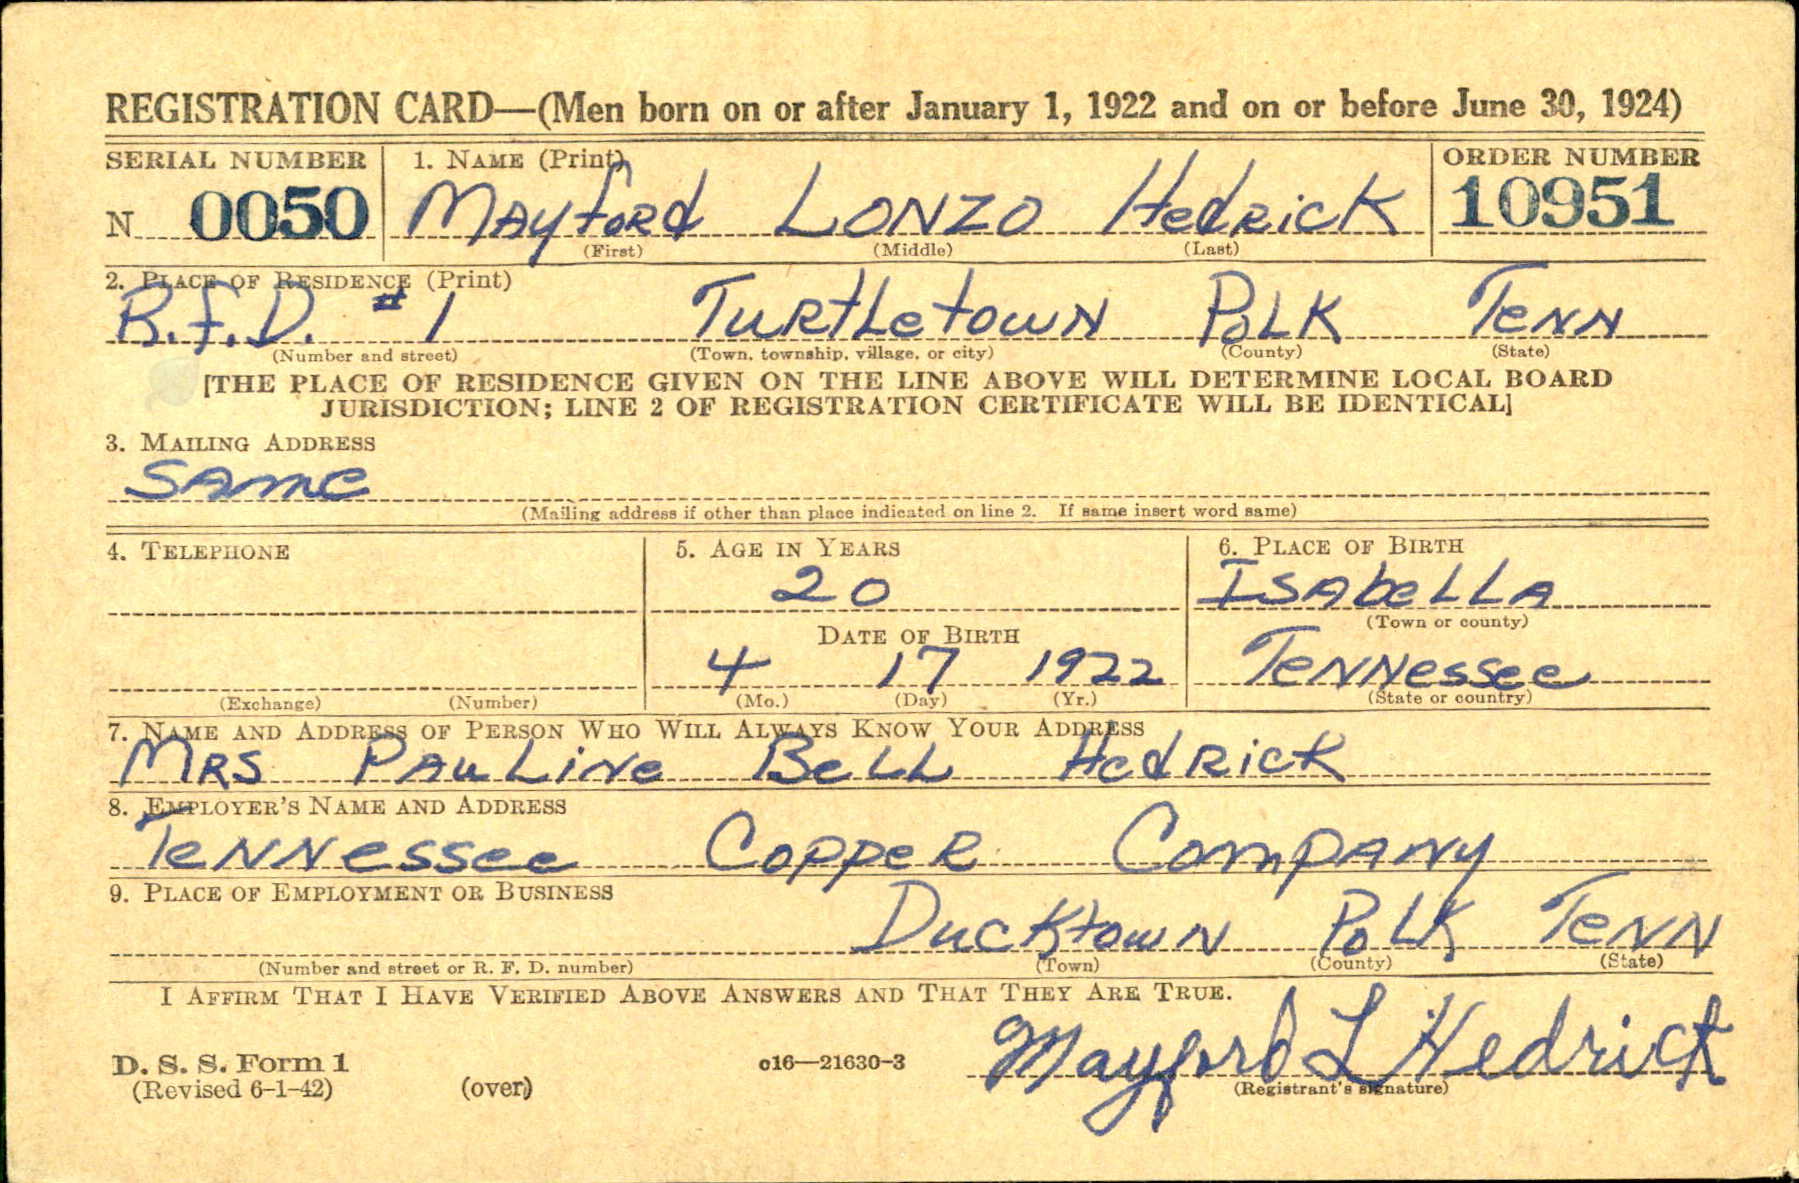 REGISTRATION CARD—(Men born on or after January 1, 1922 and on or before June 30, 1924)
SERIAL NUMBER 1. NAME (Print) ORDER NUMBER
N 0050 MAYfoRd LONZO HedRicK 10951
(First) (Middle) (Last)
2. PLACE OF RESIDENCE (Print)
R.F.D. #1 TuRtLetowN PoLK TeNN
(Number and street) (Town, township, village, or city) (County) (State)
[THE PLACE OF RESIDENCE GIVEN ON THE LINE ABOVE WILL DETERMINE LOCAL BOARD
JURISDICTION; LINE 2 OF REGISTRATION CERTIFICATE WILL BE IDENTICAL]
3. MAILING ADDRESS
SAme
(Mailing address if other than place indicated on line 2. If same insert word same)
4. TELEPHONE 5. AGE IN YEARS 6. PLACE OF BIRTH
20 ISAbeLLA
(Town or county)
DATE OF BIRTH
4 17 1922 TeNNessee
(Exchange) (Number) (Mo.) (Day) (Yr.) (State or country)
7. NAME AND ADDRESS OF PERSON WHO WILL ALWAYS KNOW YOUR ADDRESS
MRS PAuLiNe BeLL HedRicK
8. EMPLOYER'S NAME AND ADDRESS
TeNNessee CoppeR CompANy
9. PLACE OF EMPLOYMENT OR BUSINESS
DucKtowN PoLK TeNN
(Number and street or R. F. D. number) (Town) (County) (State)
I AFFIRM THAT I HAVE VERIFIED ABOVE ANSWERS AND THAT THEY ARE TRUE.
Mayford L Hedrick
D. S. S. Form 1 c16—21630-3
(Revised 6-1-42) (over) (Registrant's signature)